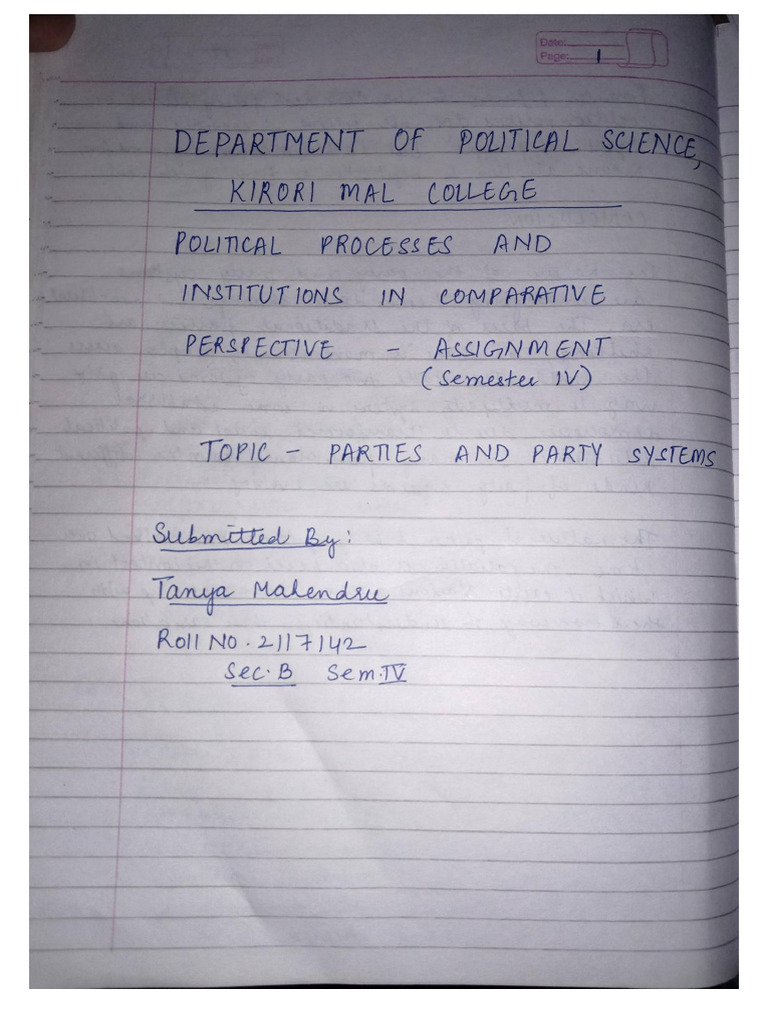 Date:
Page: 1
DEPARTMENT OF POLITICAL SCIENCE,
KIRORI MAL COLLEGE
POLITICAL PROCESSES AND
INSTITUTIONS IN COMPARATIVE
PERSPECTIVE - ASSIGNMENT
(Semester IV)
TOPIC - PARTIES AND PARTY SYSTEMS
Submitted By:
Tanya Malendru
Roll No. 2117142
Sec. B Sem. IV